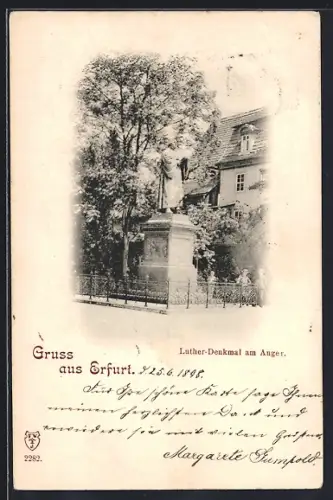 Luther-Denkmal am Anger.
Gruss
aus Erfurt. d 25.6 1898.
Für Ihre schöne Karte sage Ihnen
meinen herzlichsten Dank und
erwidere sie mit vielen Grüßen
Margarete Gumpold.
2282.